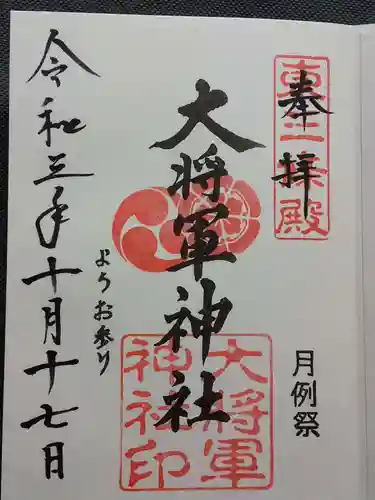 奉拝
東三條殿
大将軍神社
大将軍神社印
月例祭
ようお参り
令和三年十月十七日